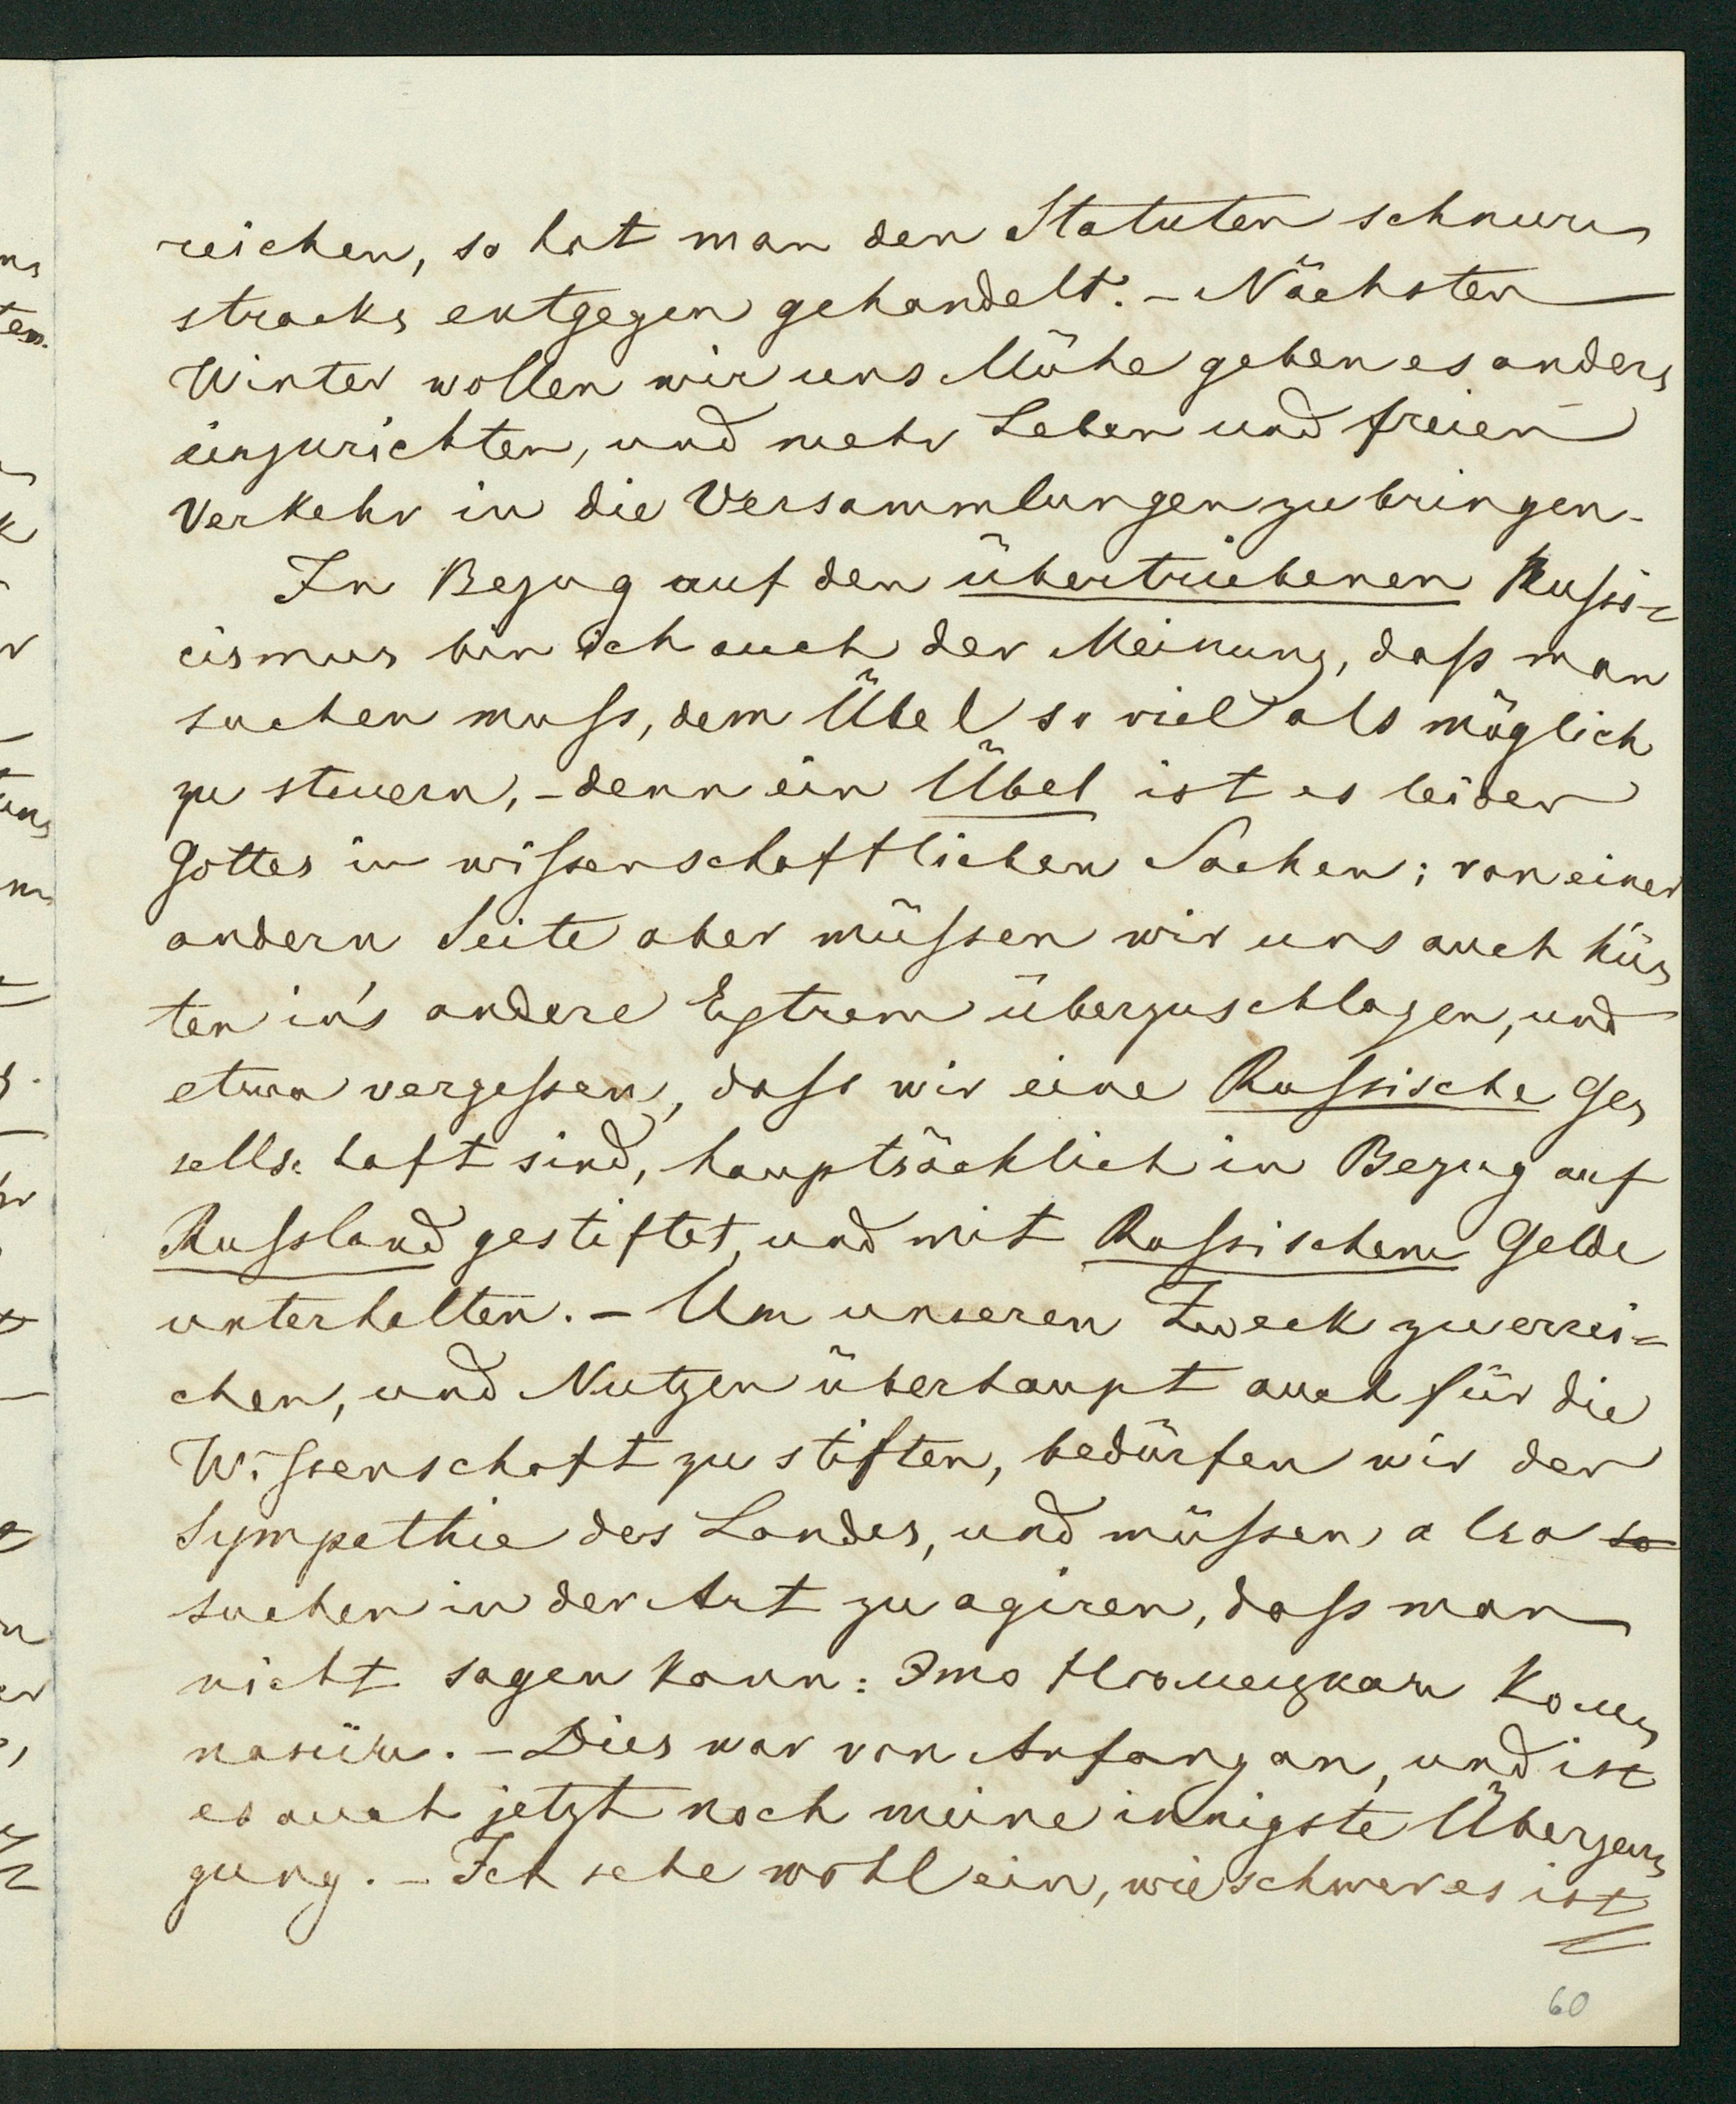 reichen, so hat man den Statuten schnur-
stracks entgegen gehandelt. – Nächsten
Winter wollen wir uns Mühe geben es anders
einzurichten, und mehr Leben und freien
Verkehr in die Versammlungen zu bringen.
In Bezug auf den übertriebenen Russi-
cismus bin ich auch der Meinung, dass man
suchen muss, dem Übel so viel als möglich
zu steuern, – denn ein Übel ist es leider
Gottes in wissenschaftlichen Sachen; von einer
andern Seite aber müssen wir uns auch hü-
ten in's andere Extrem überzuschlagen, und
etwa vergessen, dass wir eine Russische Ge-
sellschaft sind, hauptsächlich in Bezug auf
Russland gestiftet, und mit Russischem Gelde
unterhalten. – Um unseren Zweck zu errei-
chen, und Nutzen überhaupt auch für die
Wissenschaft zu stiften, bedürfen wir der
Sympathie des Landes, und müssen also so
suchen in der Art zu agiren, dass man
nicht sagen kann: Это Нѣмецкая Ком-
панія. – Dies war von Anfang an, und ist
es auch jetzt noch meine innigste Überzeu-
gung. – Ich sehe wohl ein, wie schwer es ist
60